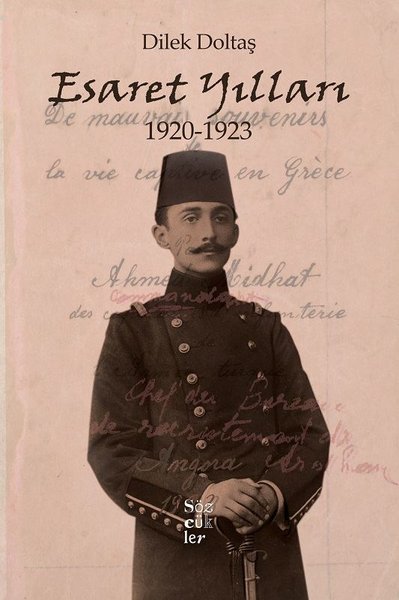 Dilek Doltaş
Esaret Yılları
De mauvais souvenirs
1920-1923
de
la vie captive en Grèce
Ahmed Midhat
commandant
des
terie
de
Chef du Bureau
de recrutement de
Angora
Söz
cük
ler